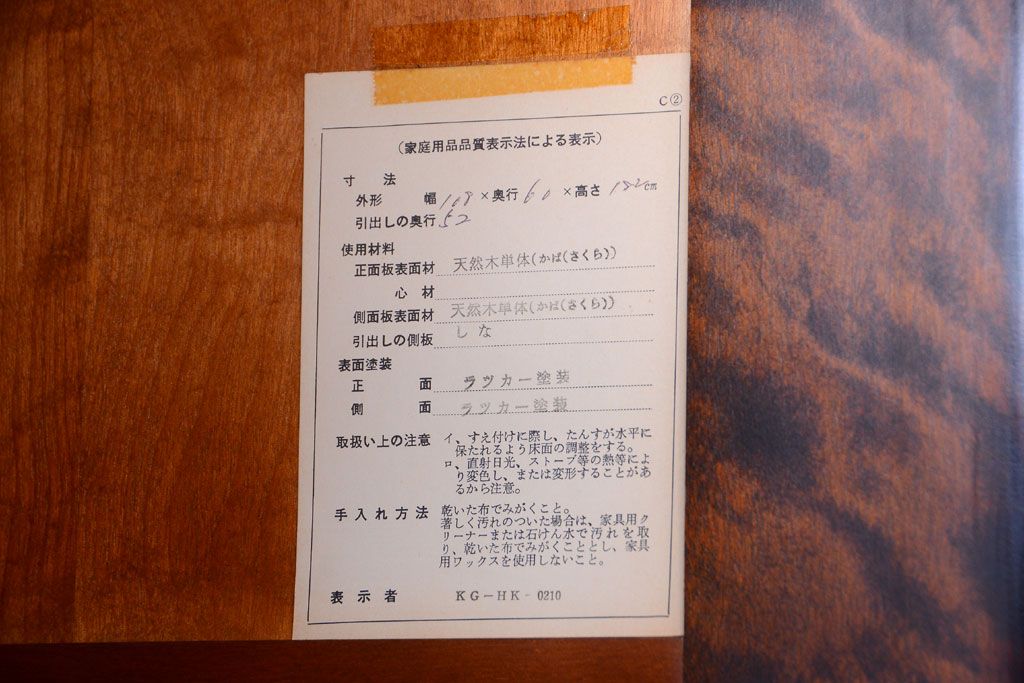 C②
（家庭用品品質表示法による表示）
寸法
外形 幅108×奥行60×高さ182cm
引出しの奥行52
使用材料
正面板表面材 天然木単体(かば(さくら))
心材
側面板表面材 天然木単体(かば(さくら))
引出しの側板 しな
表面塗装
正面 ラッカー塗装
側面 ラッカー塗装
取扱い上の注意 イ、すえ付けに際し、たんすが水平に
保たれるよう床面の調整をする。
ロ、直射日光、ストーブ等の熱等によ
り変色し、または変形することがあ
るから注意。
手入れ方法 乾いた布でみがくこと。
著しく汚れのついた場合は、家具用ク
リーナーまたは石けん水で汚れを取
り、乾いた布でみがくこととし、家具
用ワックスを使用しないこと。
表示者 KG－HK－0210